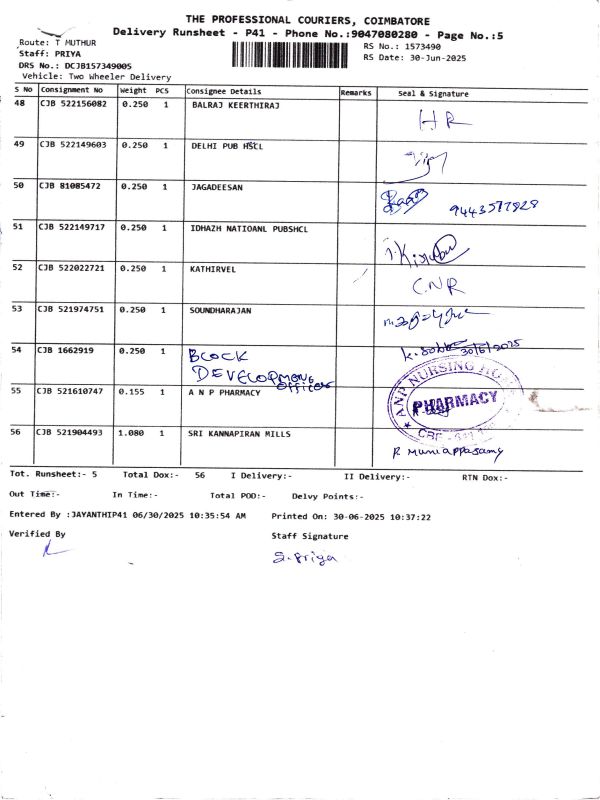 THE PROFESSIONAL COURIERS, COIMBATORE
Delivery Runsheet - P41 - Phone No.:9047080280 - Page No.:5
Route: T MUTHUR
Staff: PRIYA
DRS No.: DCJB157349005
Vehicle: Two Wheeler Delivery
RS No.: 1573490
RS Date: 30-Jun-2025
S No Consignment No Weight PCS Consignee Details Remarks Seal & Signature
48 CJB 522156082 0.250 1 BALRAJ KEERTHIRAJ HR
49 CJB 522149603 0.250 1 DELHI PUB HSCL
50 CJB 81085472 0.250 1 JAGADEESAN 9443577828
51 CJB 522149717 0.250 1 IDHAZH NATIOANL PUBSHCL
52 CJB 522022721 0.250 1 KATHIRVEL C.NR
53 CJB 521974751 0.250 1 SOUNDHARAJAN
54 CJB 1662919 0.250 1 BLOCK DEVELOPMENT Officer 30/6/2025
55 CJB 521610747 0.155 1 A N P PHARMACY ANP NURSING HOME PHARMACY
56 CJB 521904493 1.080 1 SRI KANNAPIRAN MILLS R Muniappasamy
Tot. Runsheet:- 5 Total Dox:- 56 I Delivery:- II Delivery:- RTN Dox:-
Out Time:- In Time:- Total POD:- Delvy Points:-
Entered By :JAYANTHIP41 06/30/2025 10:35:54 AM Printed On: 30-06-2025 10:37:22
Verified By Staff Signature
S. Priya